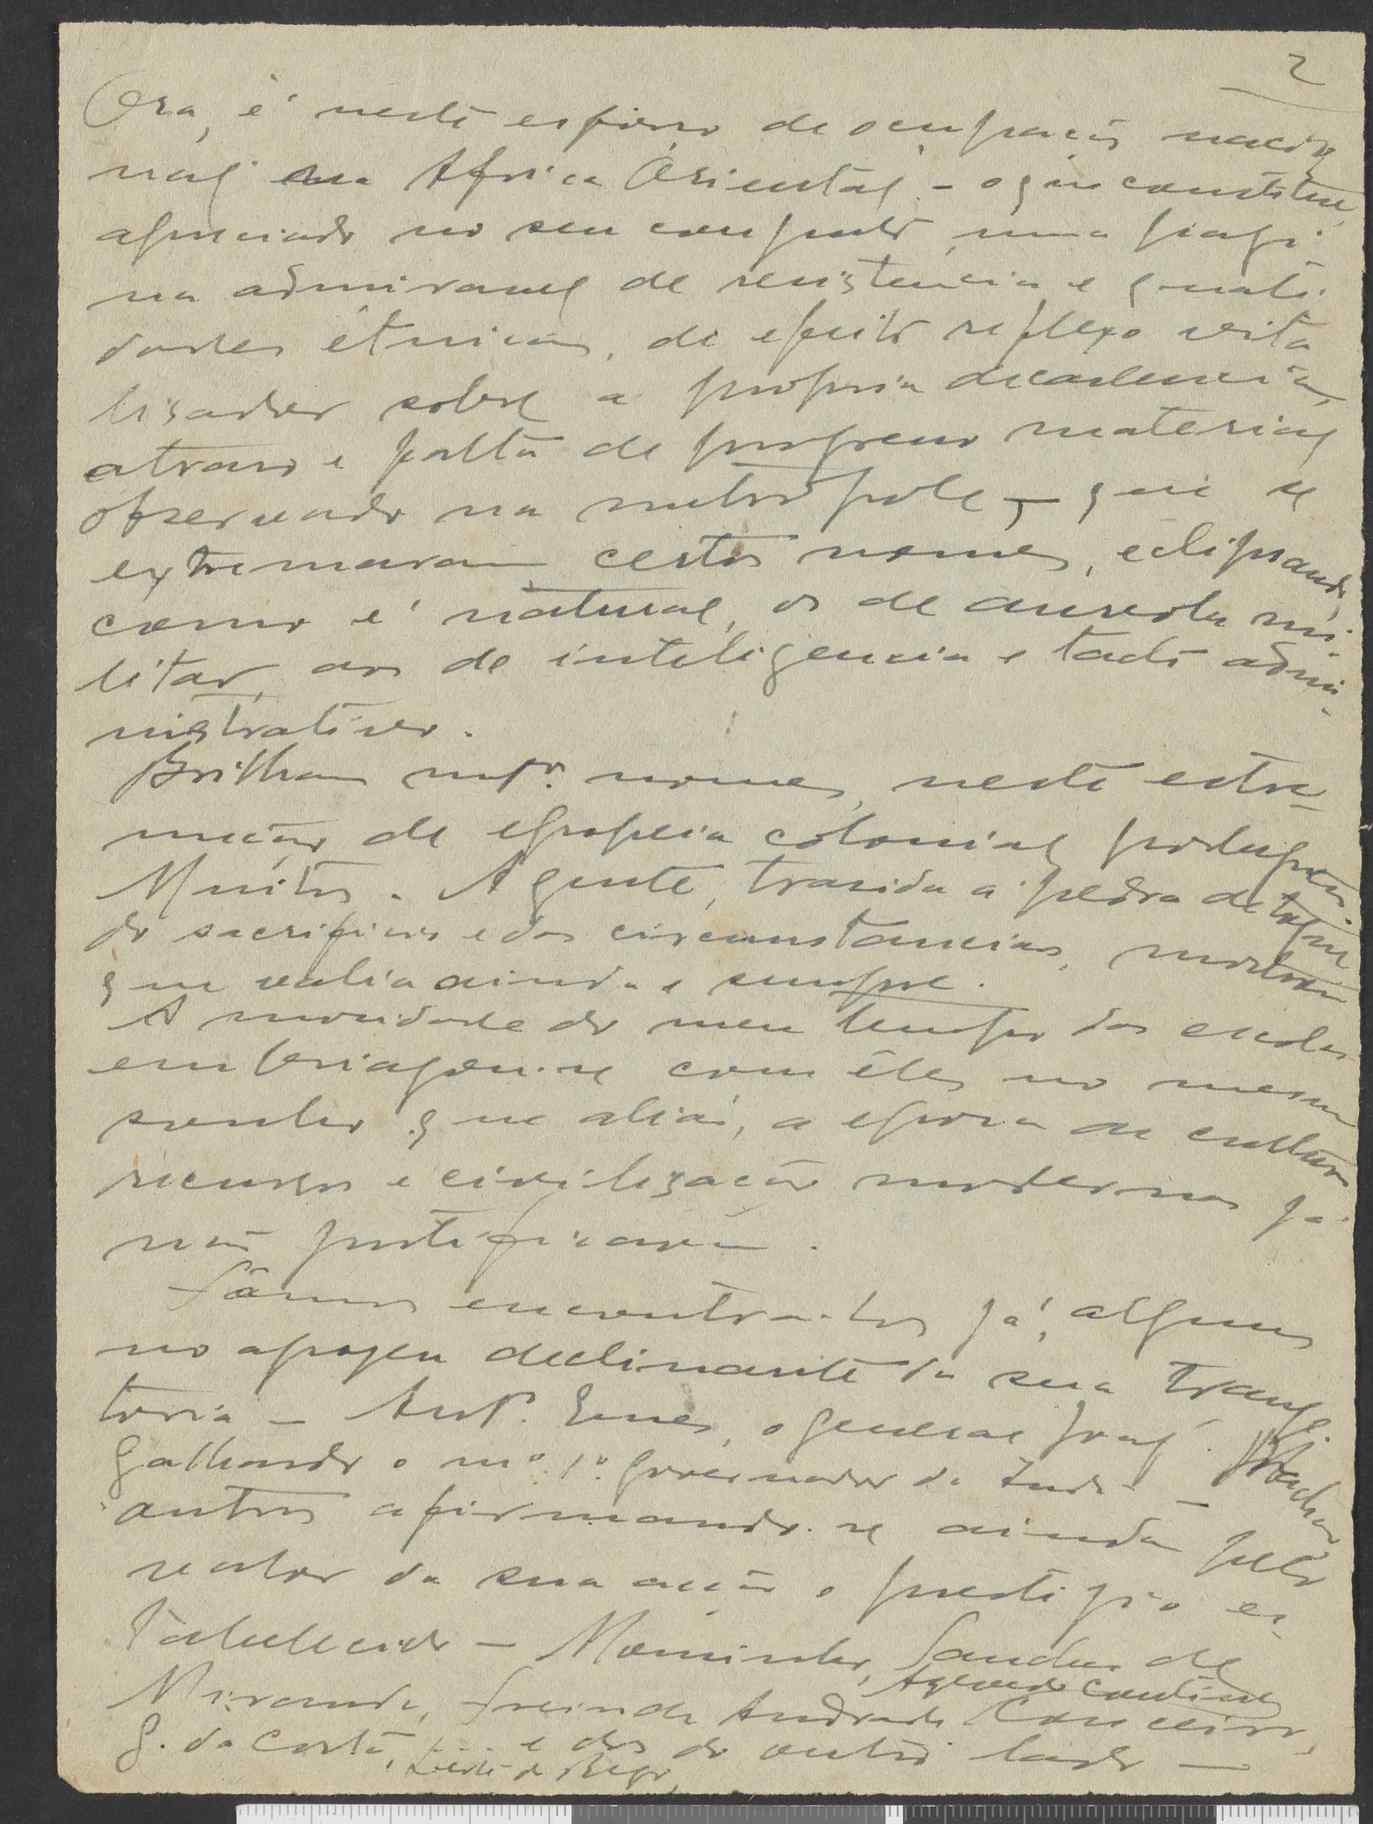 2
Ora, é neste esforço de ocupação nacio
nal na Africa Oriental - o que constitue,
apreciado no seu conjunto, uma pagi-
na admiravel de resistencia e quali-
dades étnicas, de efeito reflexo vita
lisador sobre a propria decadencia,
atraso e falta de progresso material
observado na metrópole -, que se
extremaram certos nomes, eclipsando,
como é natural, os de aureola mi-
litar, aos de inteligencia e tacto admi-
nistrativo.
Brilham nomes, neste estre-
mução de epopeia colonial portuguesa.
Muitos. A gente, trazida á pedra de toque
do sacrificio e das circumstancias, mostrou
que valia ainda e sempre.
A mocidade do meu tempo
embriagou-se com êles no mesmo
sonho que aliás, a epoca de cultura
recursos e civilização modernas já
não justificavam.
Vâmos encontra-los já, alguns
no apogeu declinante da sua traje-
toria - Antº. Enes, o general Joaqm. Machado,
Galhardo o mº. 1º. governador da India -
outros afirmando-se ainda pelo
valor da sua acção e prestigio es-
tabelecido - Mousinho, Sanches de
Miranda, Freire de Andrade, Azevedo Coutinho, Couceiro,
G. da Costa, e do outro lado -